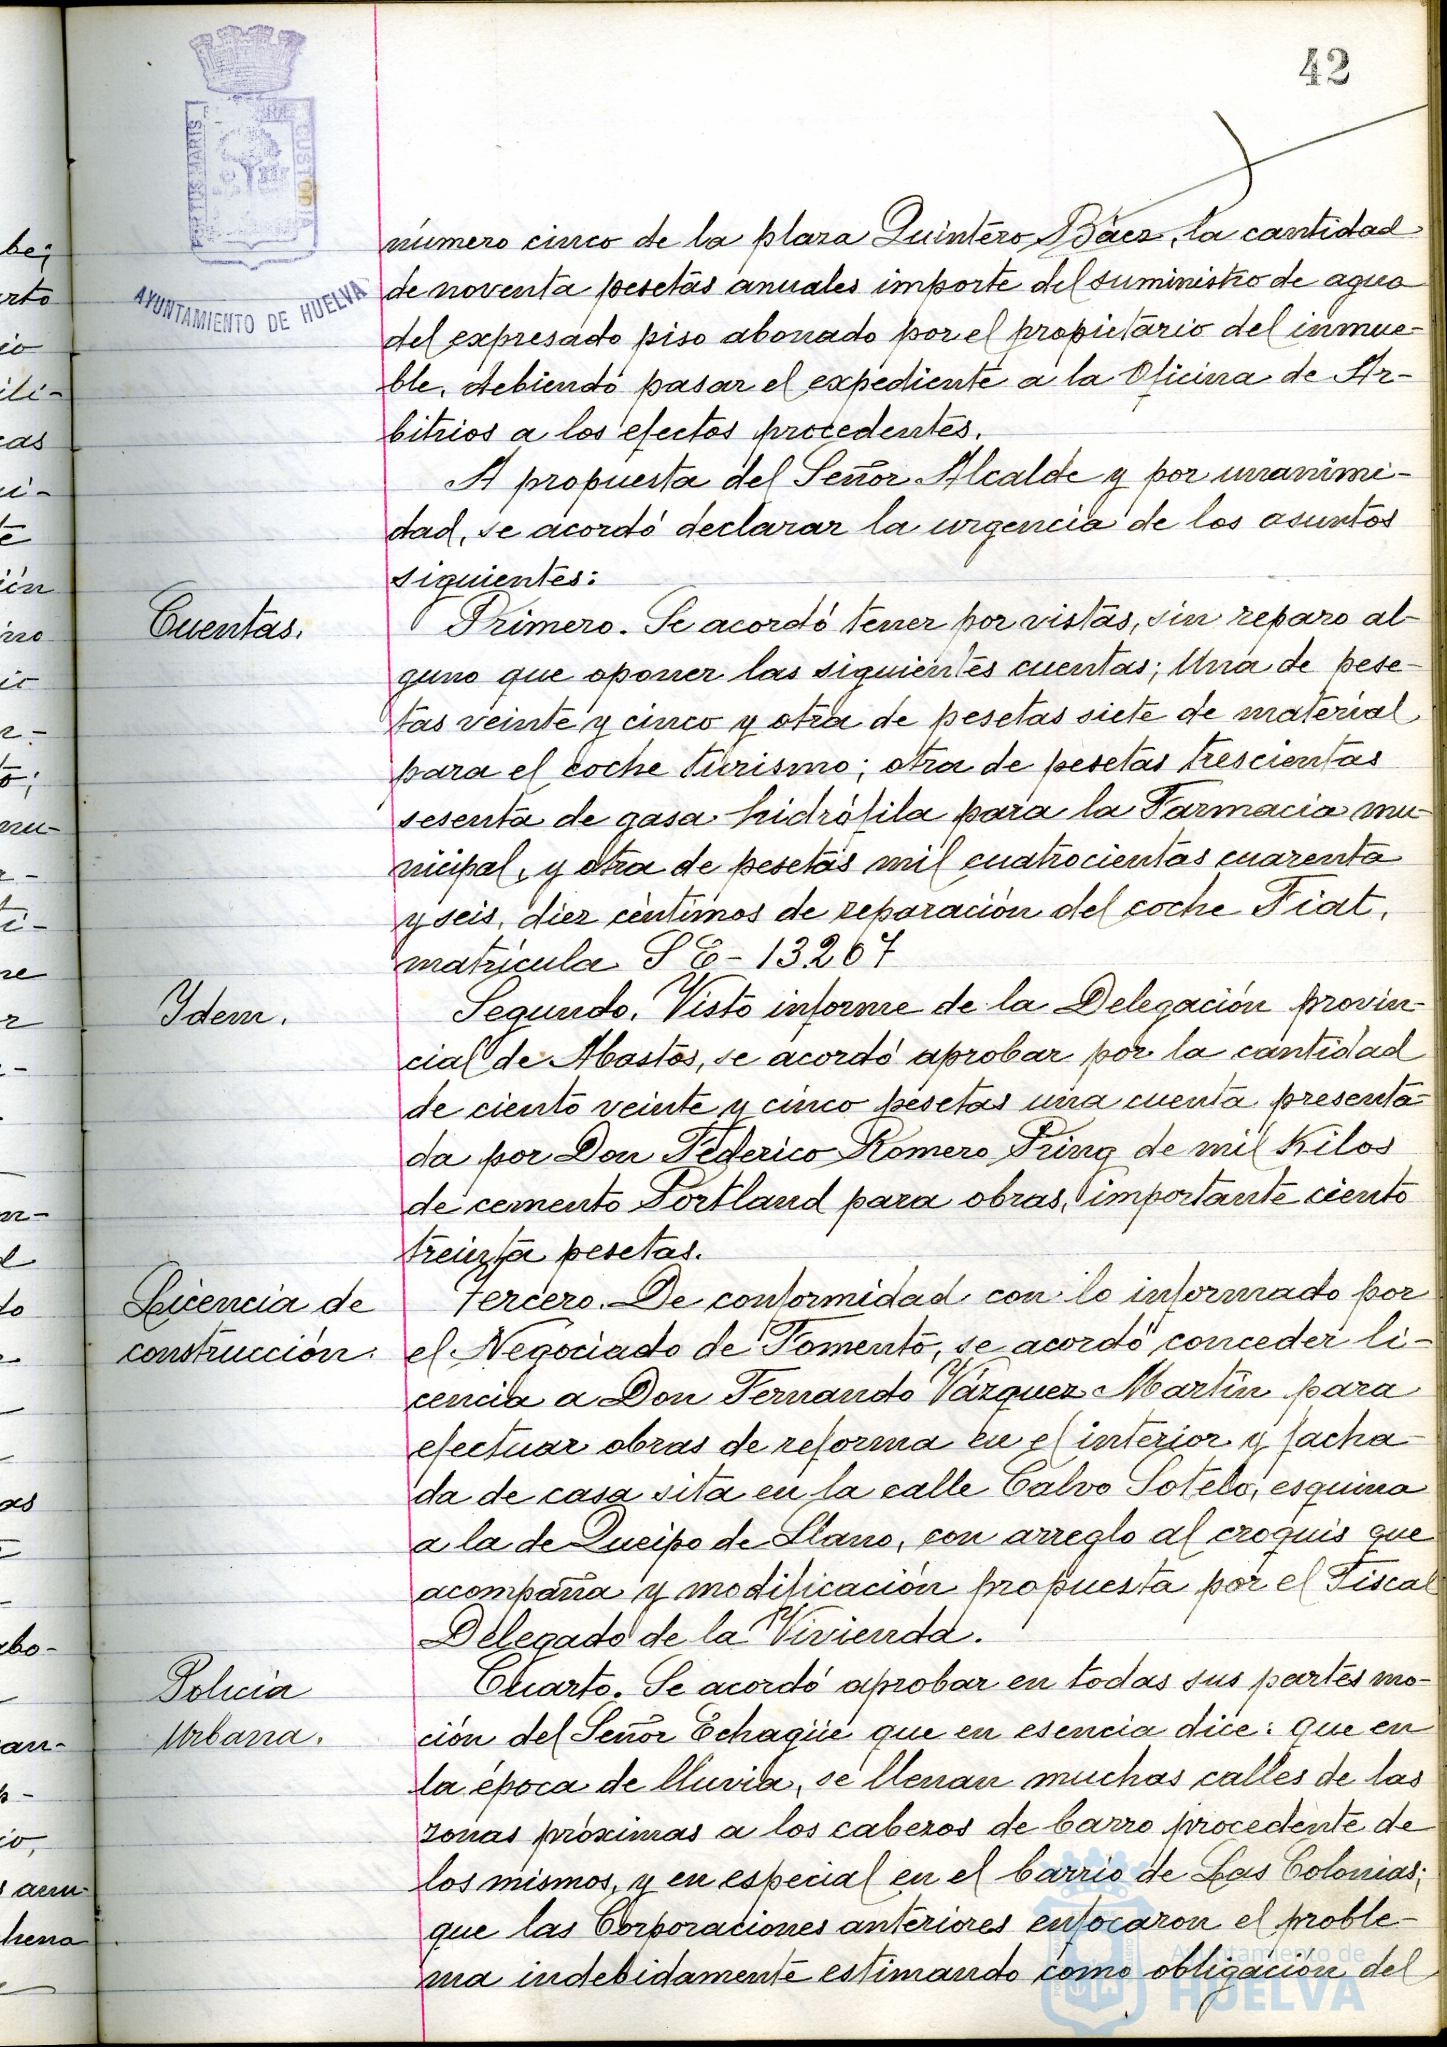 42
PORTUS MARIS
CUSTODIA
AYUNTAMIENTO DE HUELVA
número cinco de la plaza Quintero Báez, la cantidad
de noventa pesetas anuales importe del suministro de agua
del expresado piso abonado por el propietario del inmue-
ble, debiendo pasar el expediente a la Oficina de Ar-
bitrios a los efectos procedentes.
A propuesta del Señor Alcalde y por unanimi-
dad, se acordó declarar la urgencia de los asuntos
siguientes:
Cuentas.
Primero. Se acordó tener por vistas, sin reparo al-
guno que oponer las siguientes cuentas; Una de pese-
tas veinte y cinco y otra de pesetas siete de material
para el coche turismo; otra de pesetas trescientas
sesenta de gasa hidrófila para la Farmacia mu-
nicipal, y otra de pesetas mil cuatrocientas cuarenta
y seis, diez céntimos de reparación del coche Fiat,
matrícula SE-13.267
Ydem.
Segundo. Visto informe de la Delegación provin-
cial de Abastos, se acordó aprobar por la cantidad
de ciento veinte y cinco pesetas una cuenta presenta-
da por Don Federico Romero Pring de mil Kilos
de cemento Portland para obras, importante ciento
treinta pesetas.
Licencia de
construcción.
Tercero. De conformidad con lo informado por
el Negociado de Fomento, se acordó conceder li-
cencia a Don Fernando Vázquez Martín para
efectuar obras de reforma en el interior y facha-
da de casa sita en la calle Calvo Sotelo, esquina
a la de Queipo de Llano, con arreglo al croquis que
acompaña y modificación propuesta por el Fiscal
Delegado de la Vivienda.
Policía
Urbana.
Cuarto. Se acordó aprobar en todas sus partes mo-
ción del Señor Echagüe que en esencia dice: que en
la época de lluvia, se llenan muchas calles de las
zonas próximas a los cabezos de barro procedente de
los mismos, y en especial en el barrio de Las Colonias;
que las Corporaciones anteriores enfocaron el proble-
ma indebidamente estimando como obligación del
Ayuntamiento de
HUELVA